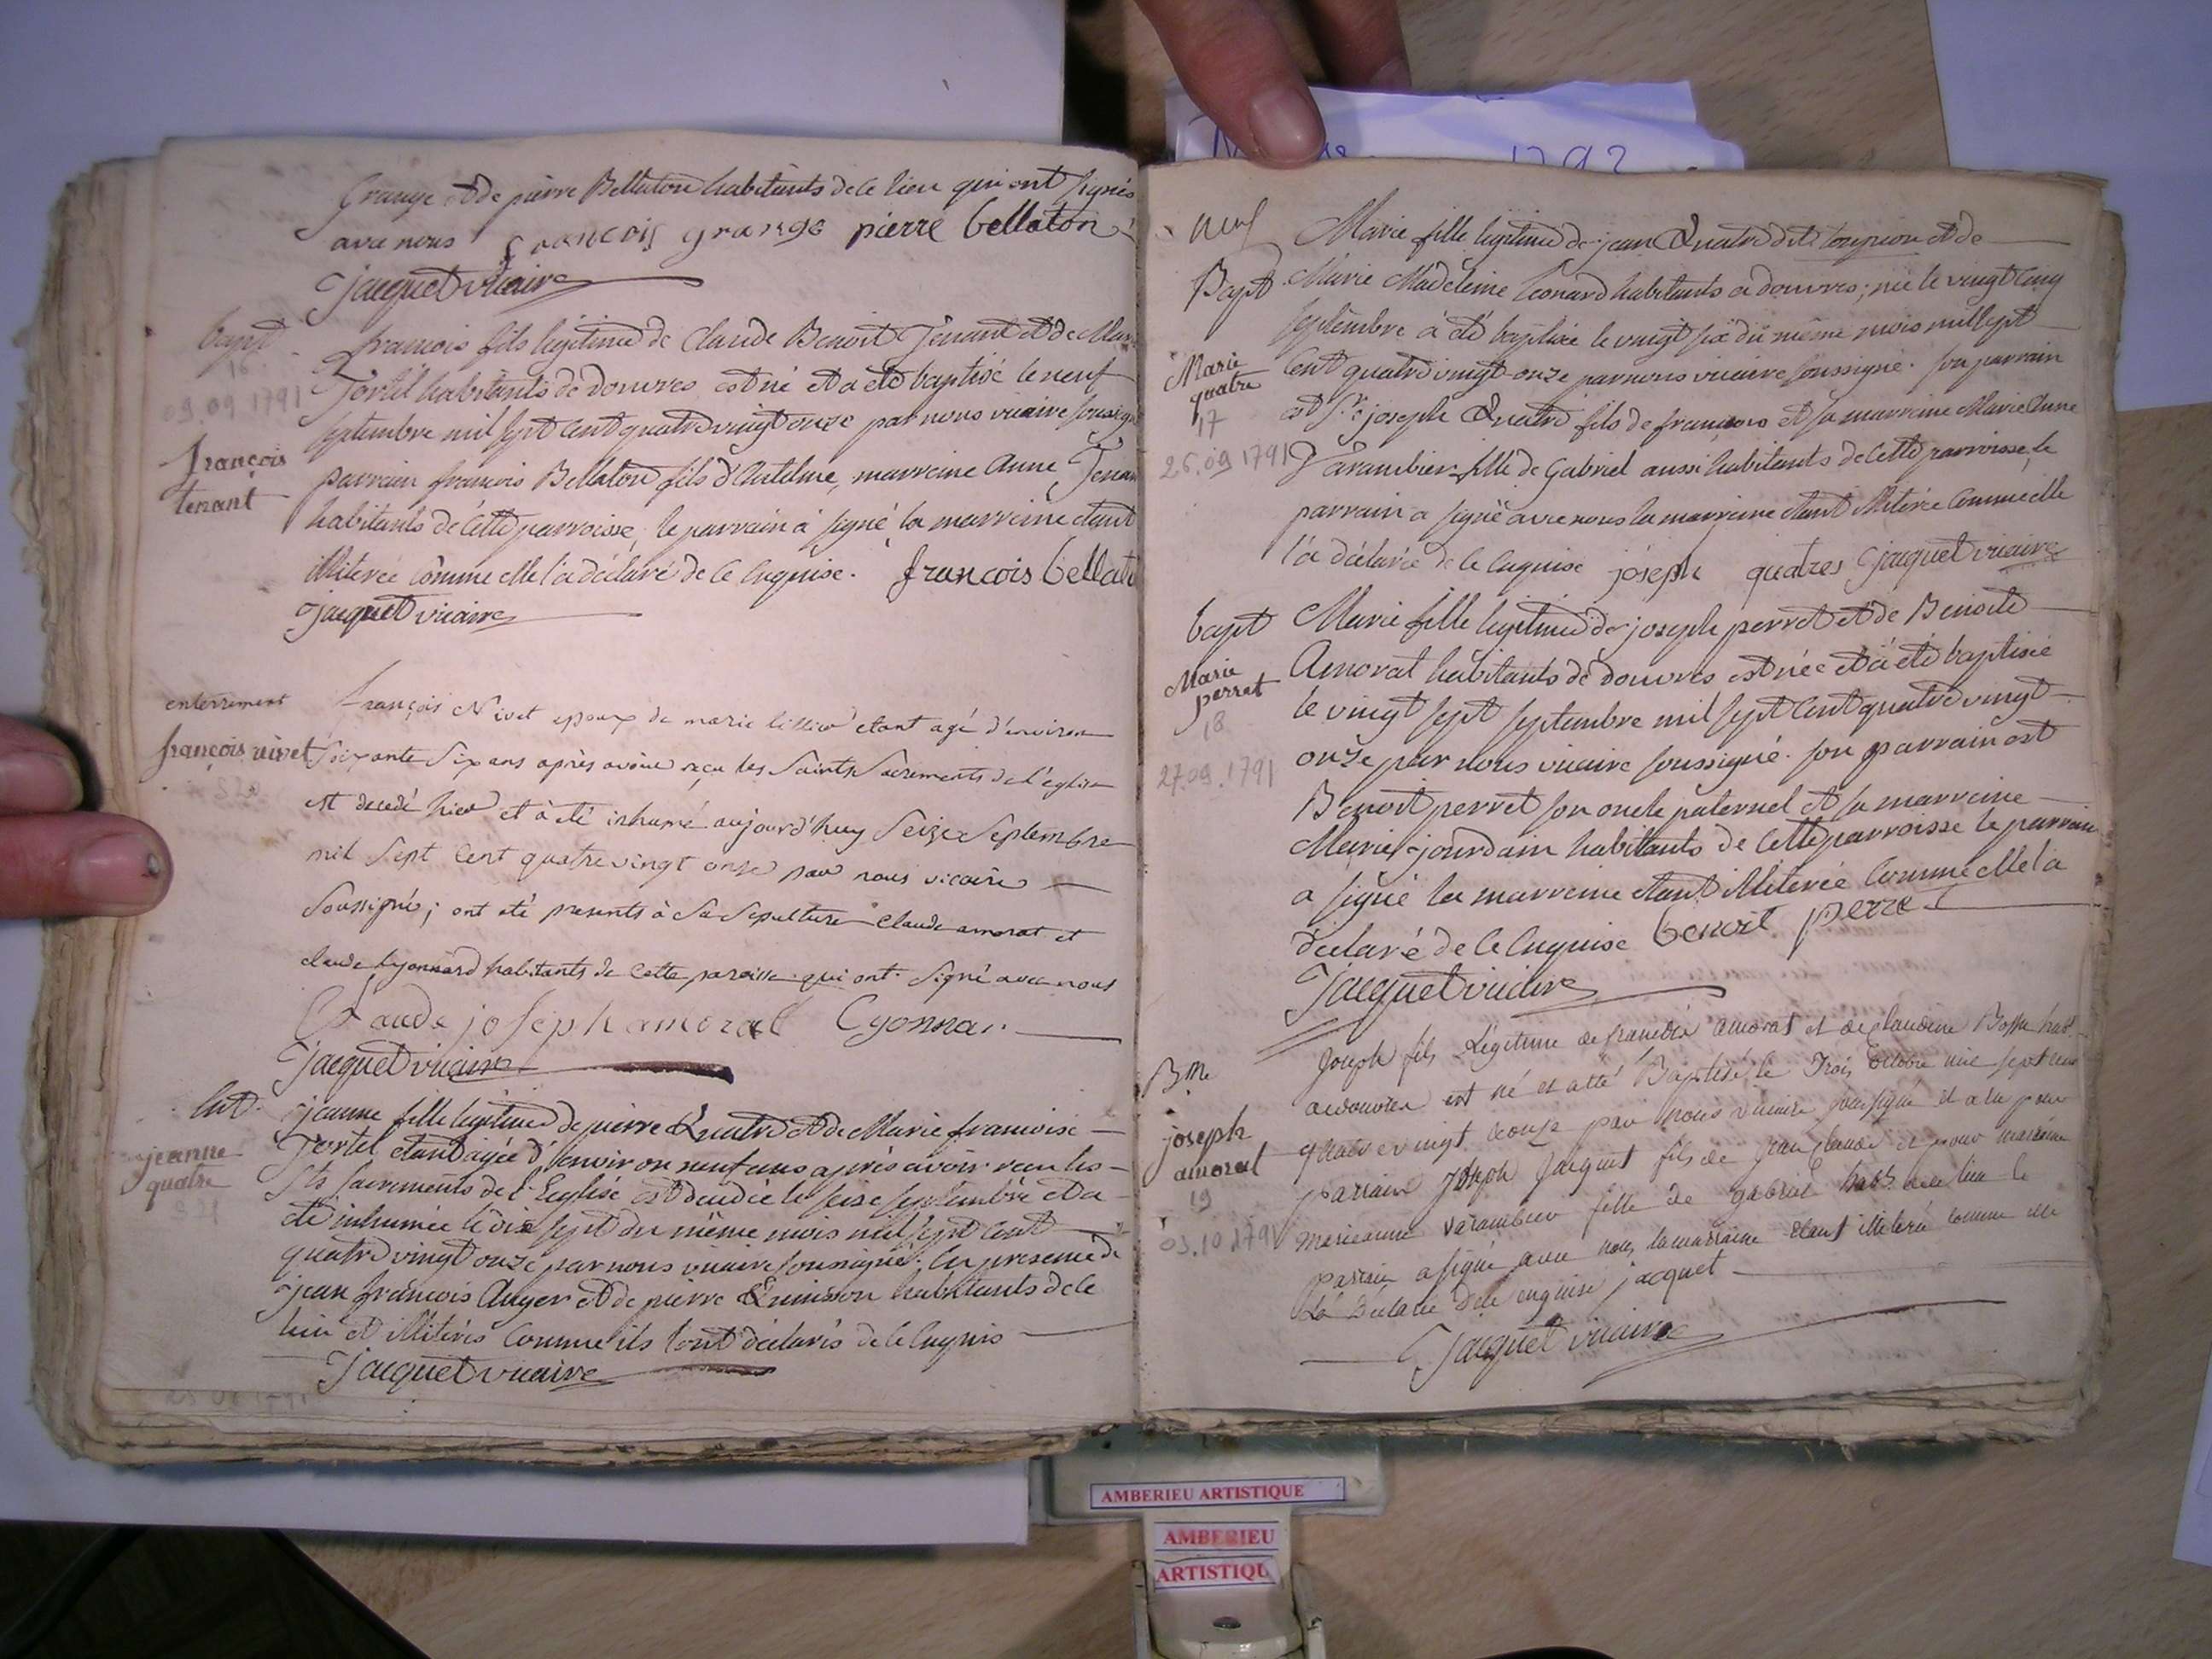 grange et de pierre Bellaton habitants de ce lieu qui ont signés
avec nous françois grange pierre bellaton
Jacquet vicaire
bapt
16
09.09.1791
françois
tenant
francois fils légitime de Claude Benoit Tenant et de Marie
Tortel habitants de douvres est né et a été baptisé le neuf
septembre mil sept cent quatre vingt onze par nous vicaire soussigné
parrain francois Bellaton fils d'Antelme, marreine Anne Tenan
habitants de cette parroisse, le parrain a signé la marreine etant
illiterée comme elle l'a déclaré de ce enquise. francois bellato
Jacquet vicaire
enterrement
françois nivet
François Nivet epoux de marie etant agé d'environ
Soixante Six ans après avoir reçu les Saints Sacrements de l'église
est decedé hier et à été inhumé aujourd'huy Seize Septembre
mil Sept Cent quatre vingt onze par nous vicaire
Soussigné; ont été presents à Sa Sepulture Claude amorat et
claude Lyonnard habitants de Cette paroisse qui ont Signé avec nous
Claude joseph amorat Lyonnar
Jacquet vicaire
Ent.
jeanne
quatre
jeanne fille légitime de pierre Quatre et de Marie francoise
Tortel etant agée d'environ neuf ans après avoir recu les
Sts sacrements de l'Eglise est decedée le seize septembre et a
été inhumée le dix sept du même mois mil sept cent
quatre vingt onze par nous vicaire soussigné. En presence de
jean françois Auger et de pierre habitants de ce
lieu et illiterés comme ils l'ont déclarés de ce enquis
Jacquet vicaire
neuf
Bapt
Marie
quatre
17
26.09.1791
Marie fille légitime de jean Quatre dit et de
Marie Madeleine Leonard habitants a douvres; née le vingt cinq
septembre à été baptisée le vingt six du même mois mil sept
Cent quatre vingt-onze par nous vicaire soussigné. son parrain
est Sr. joseph Quatre fils de francois et sa marreine Marie Anne
Varambier fille de Gabriel aussi habitants de cette parroisse, le
parrain a signé avec nous la marreine etant illiterée comme elle
l'a déclarée de ce enquise joseph quatres Jacquet vicaire
bapt
Marie
perret
18
27.09.1791
Marie fille légitime de joseph perret et de Benoite
Amorat habitants de douvres est née et à été baptisée
le vingt sept septembre mil sept Cent quatre vingt
onze par nous vicaire soussigné. son parrain est
Benoit perret son oncle paternel et sa marreine
Marie jourdain habitants de cette parroisse le parrain
a signé la marreine etant illiterée comme elle l'a
déclaré de ce enquise benoit perret
Jacquet vicaire
Bme
joseph
amorat
19
03.10.1791
Joseph fils Légitime de amorat et de claudine habt.
a douvres est né et a été Baptisé le Trois octobre mil sept cent
quatre vingt onze par nous vicaire soussigné il a eu pour
parrain Joseph Jacquet fils de jean claude et pour marreine
marieanne varambier fille de gabriel habt. de ce lieu le
parrain a signé avec nous la marraine etant illiterée comme elle
La déclaré de ce enquise jacquet
Jacquet vicaire
AMBERIEU ARTISTIQUE
AMBERIEU
ARTISTIQU